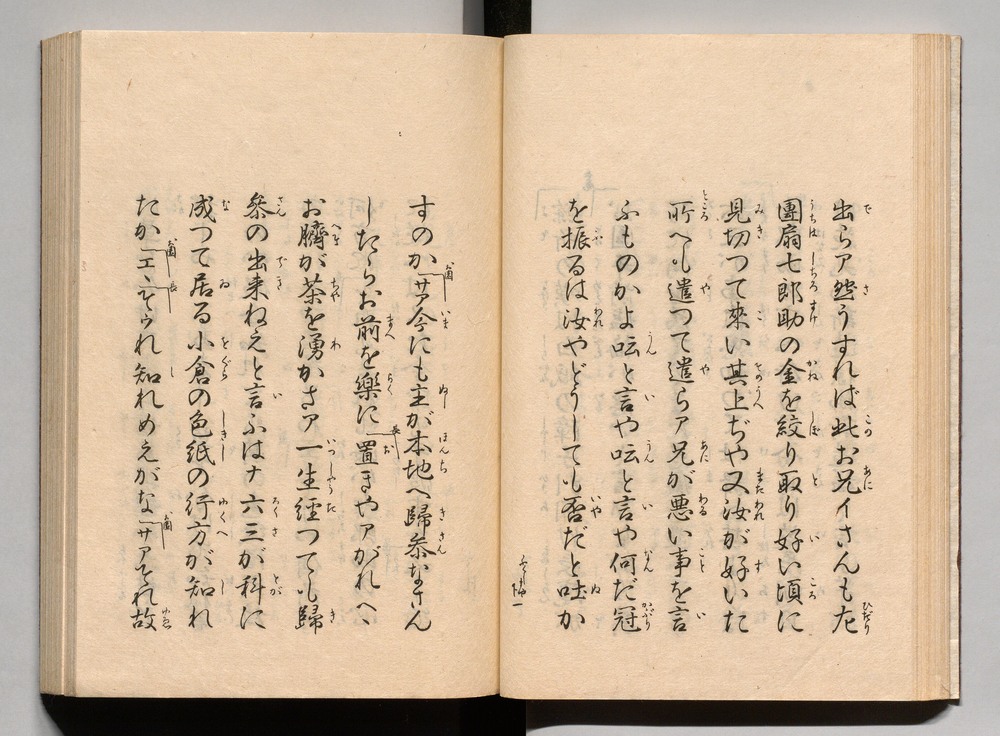 出らア然うすれば此お兄イさんも左
團扇七郎助の金を絞り取り好い頃に
見切つて來い其上ぢや又汝が好いた
所へも遣つて遣らア兄が悪い事を言
ふものかよ呍と言や呍と言や何だ冠
を振るは汝やどうしても否だと吐か
すのか「サア今にも主が本地へ歸参なさん
したらお前を樂に「置きやアがれへ
お臍が茶を湧かさア一生經つても歸
参の出来ねえと言ふはナ六三が科に
成つて居る小倉の色紙の行方が知れ
たか「エ「そうれ知れめえがな「サアそれ故